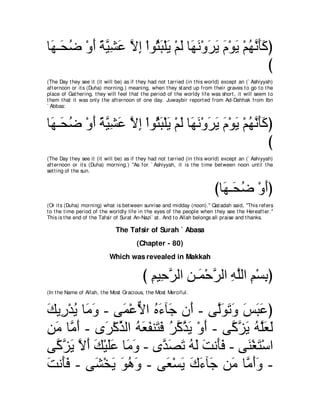 ﴿كَأَنَّهُمْ يَوْمَ يَرَوْنَهَا لَمْ يَلْبَثُواْ إِلاَّ عَشِيَّةً أَوْ ضُحَـهَا
﴾
(The Day they see it (it will be) as if they had not tarried (in this world) except an (`Ashiyyah)
afternoon or its (Duha) morning.) meaning, when they stand up from their graves to go to the
place of Gathering, they will feel that the period of the worldly life was short, it will seem to
them that it was only the afternoon of one day. Juwaybir reported from Ad-Dahhak from Ibn
`Abbas:
﴿كَأَنَّهُمْ يَوْمَ يَرَوْنَهَا لَمْ يَلْبَثُواْ إِلاَّ عَشِيَّةً أَوْ ضُحَـهَا
﴾
(The Day they see it (it will be) as if they had not tarried (in this world) except an (`Ashiyyah)
afternoon or its (Duha) morning.) "As for `Ashiyyah, it is the time between noon until the
setting of the sun.
﴿أَوْ ضُحَـهَا﴾
(Or its (Duha) morning) what is between sunrise and midday (noon)." Qatadah said, "This refers
to the time period of the worldly life in the eyes of the people when they see the Hereafter."
This is the end of the Tafsir of Surat An-Nazi`at. And to Allah belongs all praise and thanks.
The Tafsir of Surah `Abasa
(Chapter - 80)
Which was revealed in Makkah
﴿بِسْمِ اللَّهِ الرَّحْمَـنِ الرَّحِيمِ ﴾
(In the Name of Allah, the Most Gracious, the Most Merciful.
﴿عَبَسَ وَتَوَلَّى - أَن جَآءَهُ الاٌّعْمَى - وَمَا يُدْرِيكَ
لَعَلَّهُ يَزَّكَّى - أَوْ يَذَّكَّرُ فَتَنفَعَهُ الذِّكْرَى - أَمَّا مَنِ
اسْتَغْنَى - فَأَنتَ لَهُ تَصَدَّى - وَمَا عَلَيْكَ أَلاَّ يَزَّكَّى
- وَأَمَّا مَن جَآءَكَ يَسْعَى - وَهُوَ يَخْشَى - فَأَنتَ